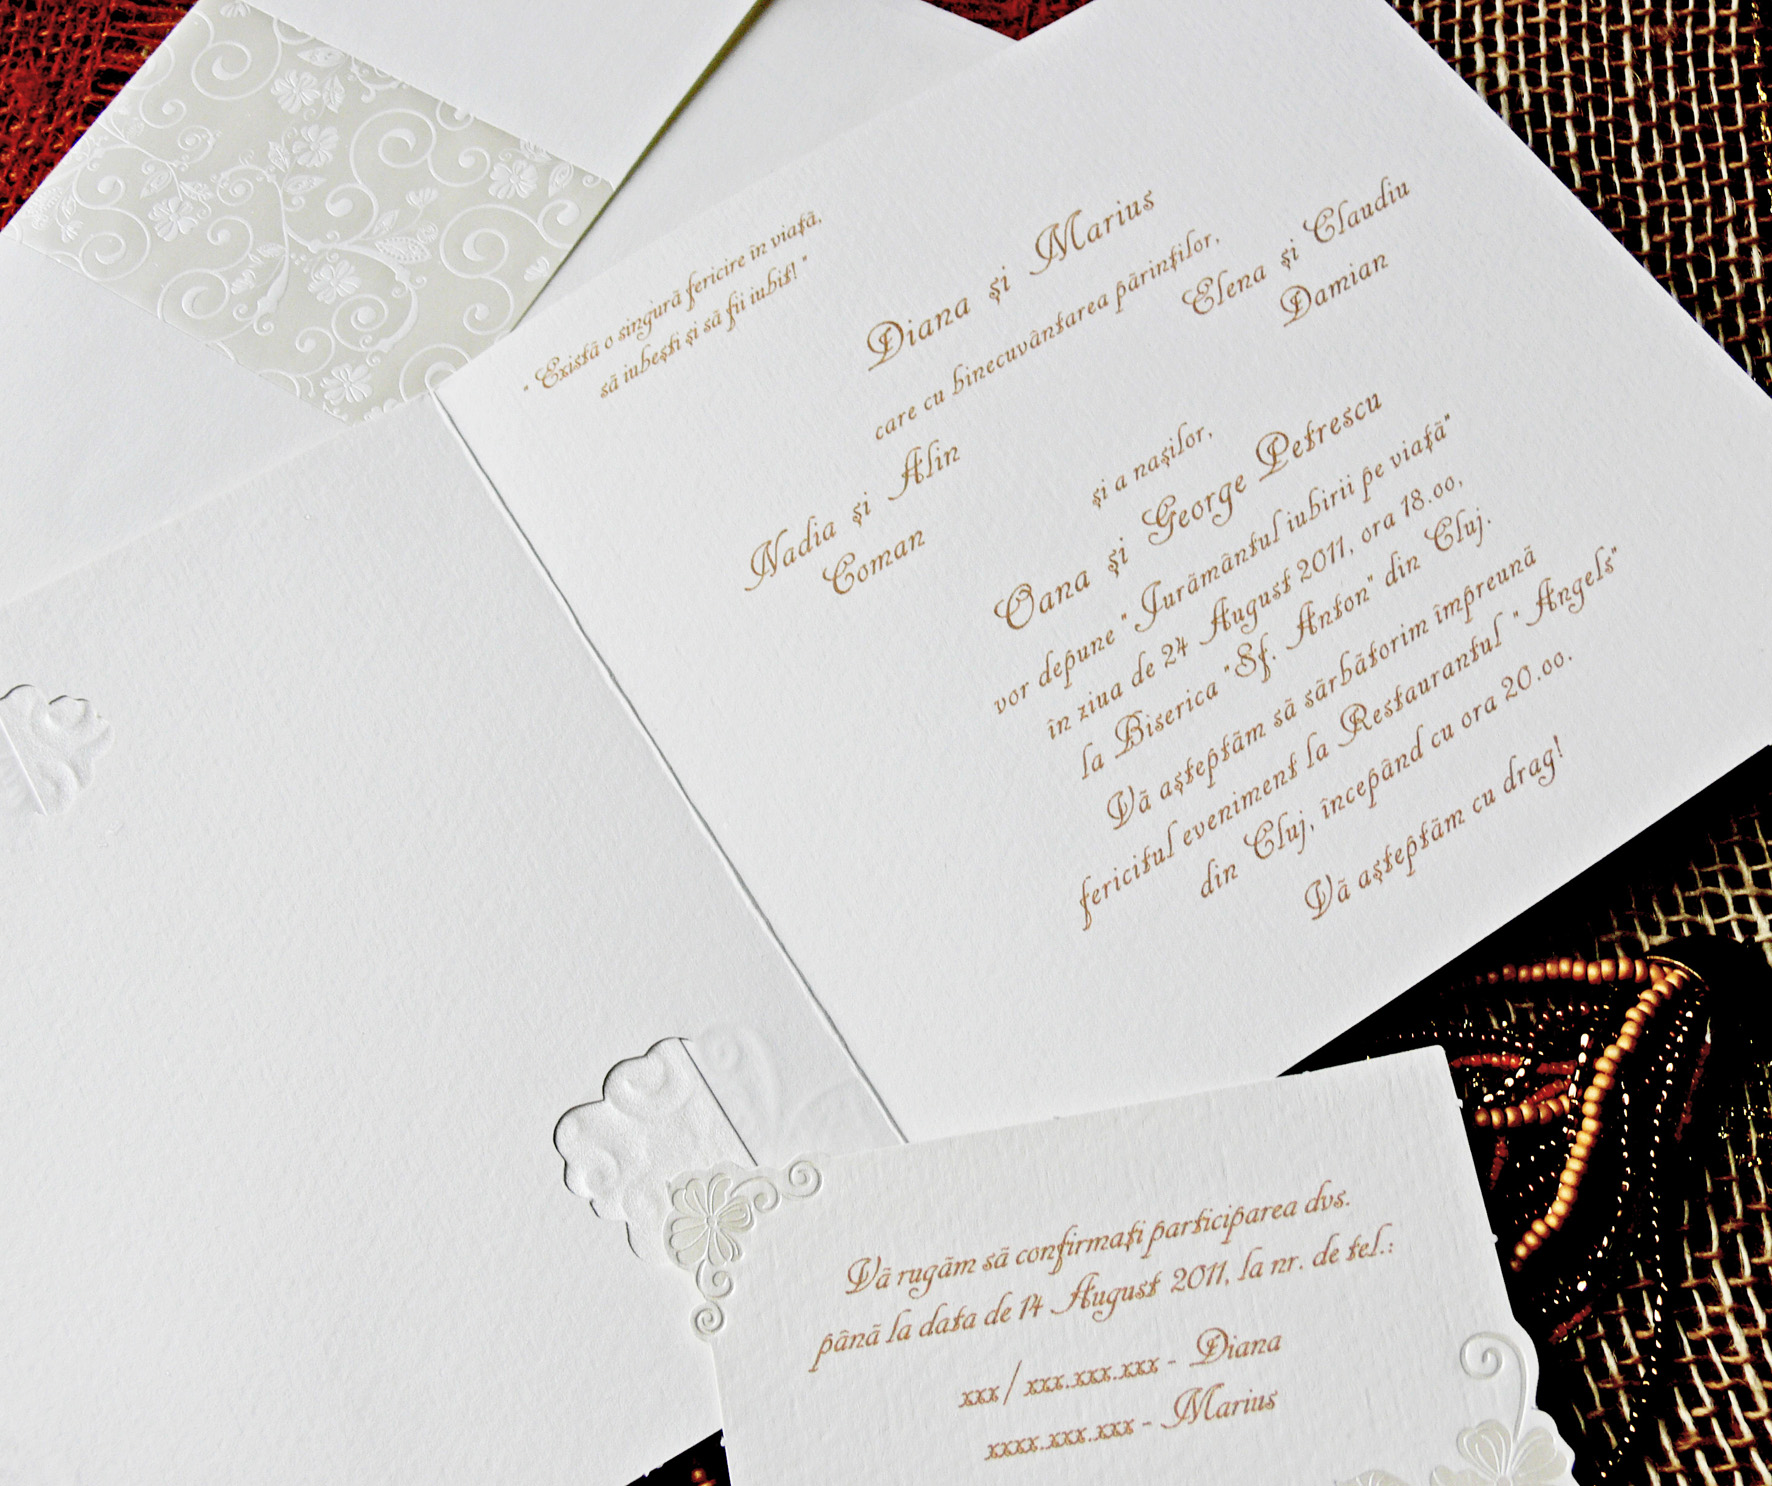 " Există o singură fericire în viață,
să iubești și să fii iubit! "
Diana și Marius
care cu binecuvântarea părinților,
Nadia și Alin
Coman
Elena și Claudiu
Damian
și a nașilor,
Oana și George Petrescu
vor depune " Jurământul iubirii pe viață"
în ziua de 24 August 2011, ora 18.00,
la Biserica "Sf. Anton" din Cluj.
Vă așteptăm să sărbătorim împreună
fericitul eveniment la Restaurantul " Angels"
din Cluj, începând cu ora 20.00.
Vă așteptăm cu drag!
Vă rugăm să confirmați participarea dvs.
până la data de 14 August 2011, la nr. de tel.:
xxx / xxx.xxx.xxx - Diana
xxxx.xxx.xxx - Marius